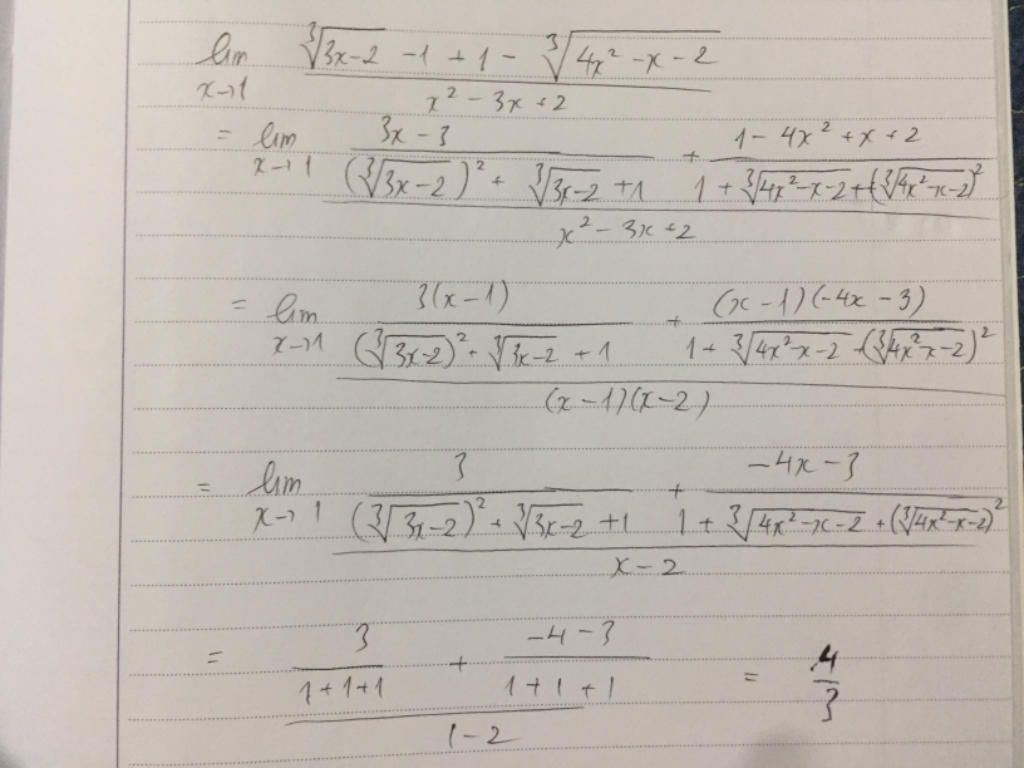 lim x→1 (∛(3x-2) - 1 + 1 - ∛(4x² - x - 2)) / (x² - 3x + 2)
= lim x→1 ((3x - 3) / ((∛(3x-2))² + ∛(3x-2) + 1) + (1 - 4x² + x + 2) / (1 + ∛(4x²-x-2) + (∛(4x²-x-2))²)) / (x² - 3x + 2)
= lim x→1 (3(x-1) / ((∛(3x-2))² + ∛(3x-2) + 1) + (x-1)(-4x-3) / (1 + ∛(4x²-x-2) + (∛(4x²-x-2))²)) / ((x-1)(x-2))
= lim x→1 (3 / ((∛(3x-2))² + ∛(3x-2) + 1) + (-4x-3) / (1 + ∛(4x²-x-2) + (∛(4x²-x-2))²)) / (x-2)
= (3 / (1+1+1) + (-4-3) / (1+1+1)) / (1-2) = 4/3